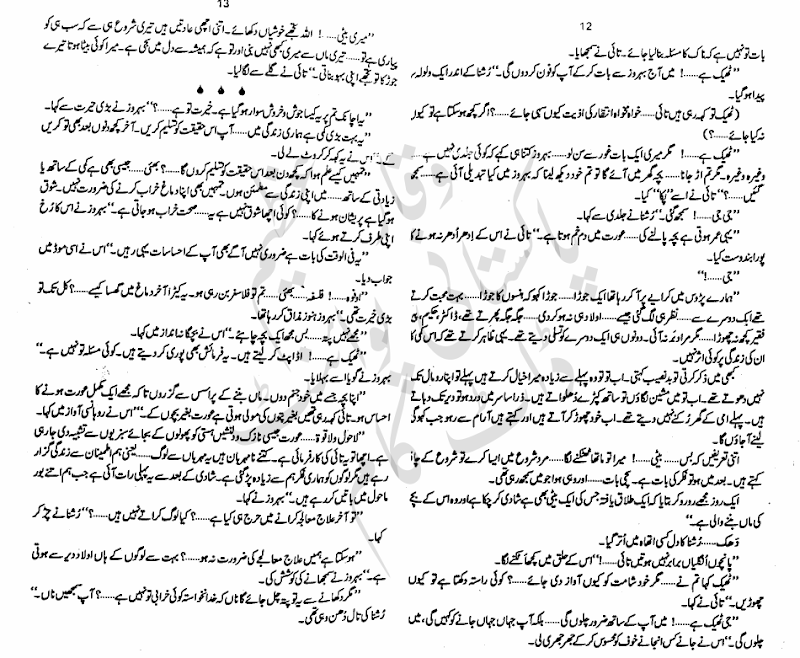 12
بات تو نہیں ہے کہ ناک کا مسئلہ بنا لیا جائے۔ تائی نے سمجھایا۔
”ٹھیک ہے......! میں آج بہروز سے بات کر کے آپ کو فون کر دوں گی۔“ رُشنا کے اندر ایک ولولہ
پیدا ہو گیا۔
(ٹھیک تو کہہ رہی ہیں تائی......خواہ مخواہ انتظار کی اذیت کیوں سہی جائے......؟ اگر کچھ ہو سکتا ہے تو کیوں
نہ کیا جائے......؟)
”ٹھیک ہے......! مگر میری ایک بات غور سے سن لو......بہروز کتنا ہی کہے کہ کوئی جلدی نہیں ہے
وغیرہ وغیرہ۔ مگر تم اڑ جانا......بچہ گھر میں آئے گا تو تم خود دیکھ لینا کہ بہروز میں کیا تبدیلی آئی ہے......سمجھ
گئیں......؟“ تائی نے اسے ”پکا“ کیا۔
”جی جی......! سمجھ گئی۔“ رُشنا نے جلدی سے کہا۔
”یہی عمر ہوتی ہے بچہ پالنے کی......عورت میں دم خم ہوتا ہے۔“ تائی نے اس کے اِدھر اُدھر نہ ہونے کا
پورا بندوبست کیا۔
”جی......!“
”ہمارے پڑوس میں کرایے پر آ کر رہا تھا ایک جوڑا......جوڑا کہو کہ ہنسوں کا جوڑا......بہت محبت کرتے
تھے ایک دوسرے سے......نظر ہی لگ گئی جیسے......اولاد ہی نہ ہو کر دی......جگہ جگہ پھرتے تھے، ڈاکٹر، حکیم، پیر
فقیر کچھ نہ چھوڑا......مگر مراد نہ آئی۔ دونوں ہی ایک دوسرے کو تسلی دیتے تھے۔ یہی ظاہر کرتے تھے کہ اس کمی کا
ان کی زندگی پر کوئی اثر نہیں۔
کبھی میں ذکر کرتی تو بدنصیب کہتی۔ اب تو وہ پہلے سے زیادہ میرا خیال کرتے ہیں پہلے تو اپنا رومال تک
نہیں دھوتے تھے۔ اب تو میں مشین لگاؤں تو ساتھ کپڑے دُھلواتے ہیں۔ ذرا سا سر میں درد ہو تو دیر تک دباتے
ہیں۔ پہلے امی کے گھر رُکنے نہیں دیتے تھے۔ اب خود چھوڑ کر آتے ہیں اور کہتے ہیں آرام سے رہو جب کہو گی
لینے آ جاؤں گا۔
اتنی تعریفیں کہ بس......بیٹی......! میرا تو ماتھا ٹھنکنے لگا......مرد شروع میں ایسا کرے تو شروع کے
کہتے ہیں۔ بعد میں ہو تو فکر کی بات ہے۔ پکی بات......اور وہی ہوا جو میں سمجھ رہی تھی۔
ایک روز مجھے رو رو کر بتایا کہ ایک طلاق یافتہ جس کی ایک بیٹی بھی ہے شادی کر چکا ہے اور وہ اس کے بچے
کی ماں بننے والی ہے۔“
دَھک......رُشنا کا دل کسی اتھاہ میں اُتر گیا۔
”پانچوں اُنگلیاں برابر نہیں ہوتیں تائی......!“ اس کے حلق میں کچھ اٹکنے لگا۔
”ٹھیک کہا تم نے......مگر خود شامت کو کیوں آواز دی جائے......؟ کوئی راستہ دِکھتا ہے تو کیوں
چھوڑیں۔“ تائی نے کہا۔
”جی ٹھیک ہے......! میں آپ کے ساتھ ضرور چلوں گی......بلکہ آپ جہاں جہاں جانے کو کہیں گی، میں
چلوں گی۔“ اس نے جانے کس انجانے خوف کو محسوس کر کے جھرجھری لی۔
13
”میری بیٹی......! اللہ تجھے خوشیاں دکھائے۔ اتنی اچھی عادتیں ہیں تیری شروع ہی سے کہ سب ہی کو
پیاری ہے تو......تیری ماں سے میری کبھی نہیں بنی اور تو ہے کہ ہمیشہ سے دل میں بسی ہے۔ میرا کوئی بیٹا ہوتا تیرے
جوڑ کا تو تجھے اپنی بہو بناتی۔“ تائی نے گلے سے لگا لیا۔
”یہ اچانک تم پر یہ کیسا جوش و خروش سوار ہو گیا ہے۔ خیرت تو ہے......؟“ بہروز نے بڑی حیرت سے کہا۔
”یہ بہت بڑی کمی ہے ہماری زندگی میں......آپ اس حقیقت کو تسلیم کریں۔ آخر کچھ دنوں بعد بھی تو کریں
گے۔“ اس نے یہ کہہ کر کروٹ لے لی۔
”تمہیں کیسے علم ہوا کہ کچھ دن بعد اس حقیقت کو تسلیم کروں گا......؟ بھئی......جیسی بھی ہے کمی کے ساتھ یا
زیادتی کے ساتھ......میں اپنی زندگی سے مطمئن ہوں۔ تمہیں بھی اپنا دماغ خراب کرنے کی ضرورت نہیں۔ شوق
ہو گیا ہے پریشان ہونے کا......؟ کوئی اچھا شوق نہیں ہے یہ......صحت خراب ہو جاتی ہے۔“ بہروز نے اس کا رُخ
اپنی طرف کرتے ہوئے کہا۔
”یہ فی الوقت کی بات ہے ضروری نہیں آگے بھی آپ کے احساسات یہی رہیں۔“ اس نے اسی موڈ میں
جواب دیا۔
”اونوہ......! فلسفہ......بھئی......تم تو فلاسفر بن رہی ہو۔ یہ کیڑا آخر دماغ میں گھسا کیسے......؟ کل تک تو
بڑی خیریت تھی۔“ بہروز ہنوز مذاق کر رہا تھا۔
”مجھے نہیں پتہ......بس مجھے ایک بچہ چاہئے۔“ اس نے بچگانہ انداز میں کہا۔
”ٹھیک ہے......! اڈاپٹ کر لیتے ہیں۔ یہ فرمائش بھی پوری کر دیتے ہیں۔ کوئی مسئلہ تو نہیں ہے۔“
بہروز نے گویا اسے بہلایا۔
”اپنا بچہ جسے میں خود جنم دوں۔ ماں بننے کے پراسس سے گزروں تا کہ مجھے ایک مکمل عورت ہونے کا
احساس ہو۔ تائی کہہ رہی تھیں بغیر پتوں کی مولی ہوتی ہے عورت بغیر بچوں کے۔“ اس نے روہانسی آواز میں کہا۔
”لاحول ولا قوۃ......عورت جیسی نازک و دلنشیں ہستی کو پھولوں کے بجائے سبزیوں سے تشبیہ دی جا رہی
ہے۔ اچھا تو یہ تائی کی کارفرمائی ہے۔ کتنے نامہربان ہیں یہ مہرباں سے لوگ......یعنی ہم اطمینان سے زندگی گزار
رہے ہیں مگر لوگوں کو ہماری فکر ہم سے زیادہ پڑ گئی ہے۔ شادی کے بعد سے یہ پہلی رات آئی ہے جب ہم اتنے بور
ماحول میں باتیں کر رہے ہیں۔“ بہروز نے کہا۔
”تو آخر علاج معالجہ کرانے میں حرج ہی کیا ہے......؟ کیا لوگ کراتے نہیں ہیں......؟“ رُشنا نے چڑ کر
کہا۔
”ہو سکتا ہے ہمیں علاج معالجے کی ضرورت نہ ہو......؟ بہت سے لوگوں کے ہاں اولاد دیر سے ہوتی
ہے۔“ بہروز نے سمجھانے کی کوشش کی۔
”مگر دکھانے سے یہ تو پتہ چل جائے گا ناں کہ خدانخواستہ کوئی خرابی تو نہیں ہے......؟ آپ سمجھیں ناں۔“
رُشنا کی تال دُھن وہی تھی۔